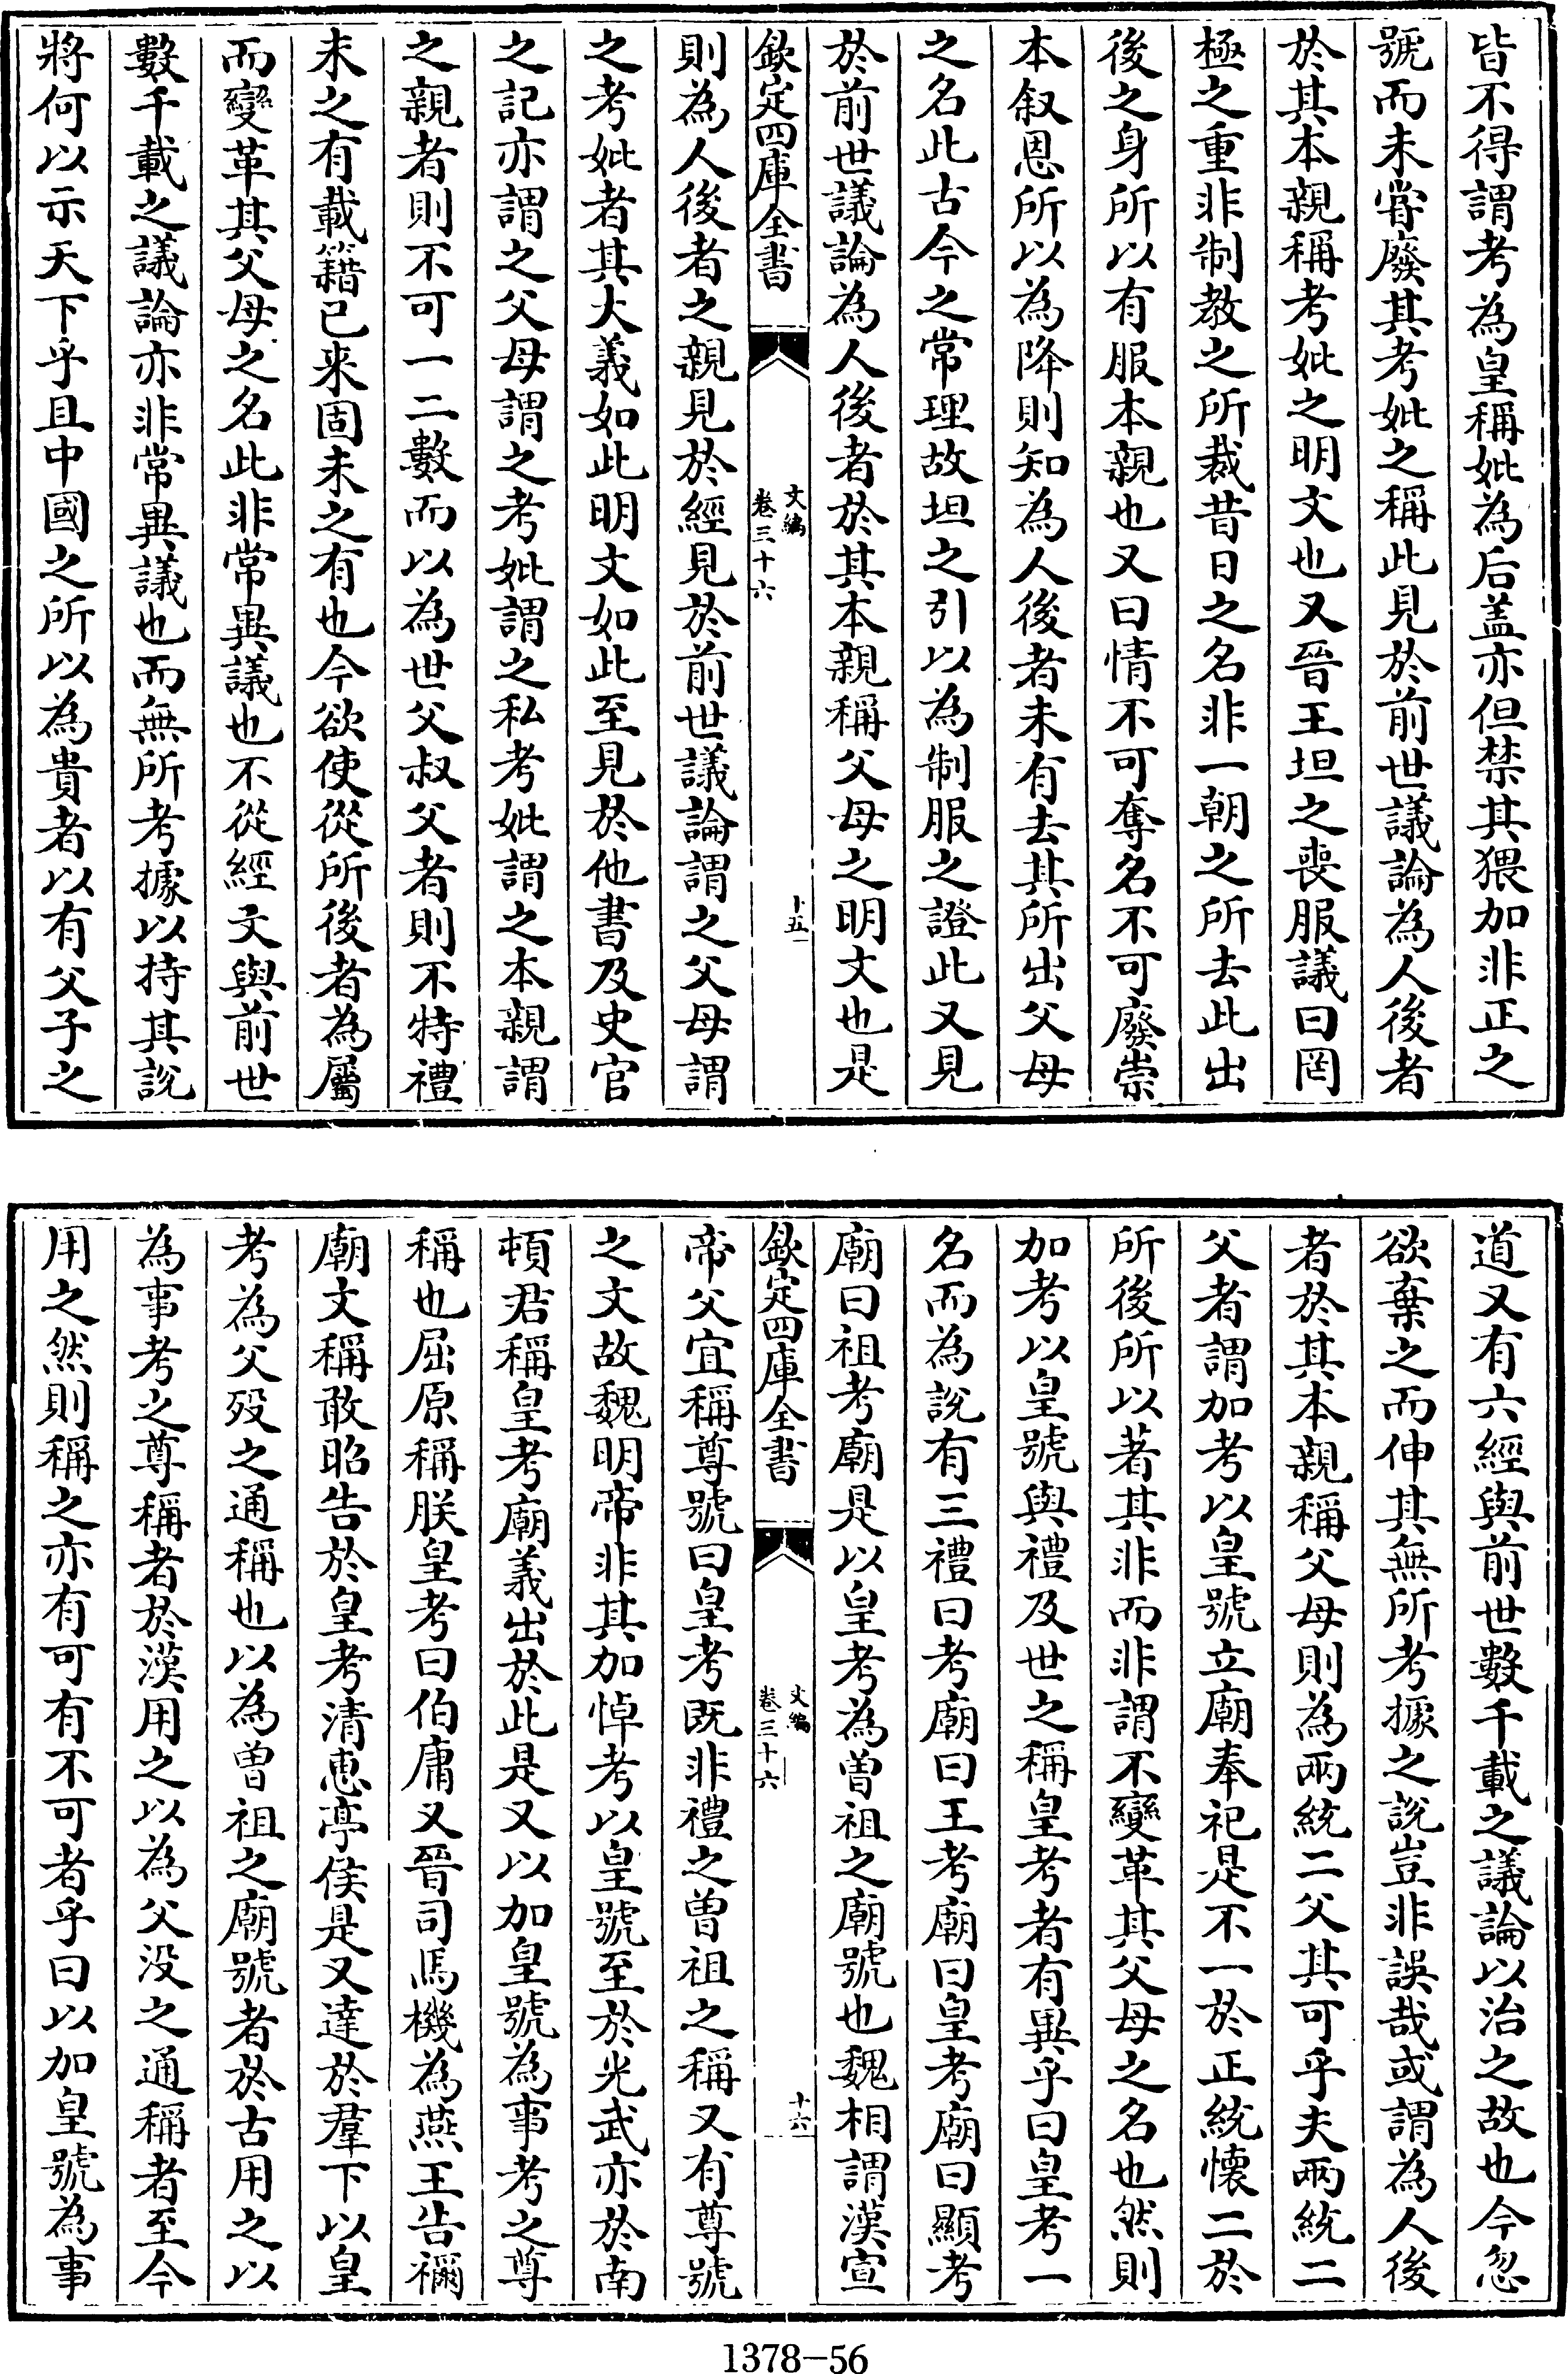 皆不得謂考為皇稱妣為后盖亦但禁其猥加非正之
號而未嘗廢其考妣之稱此見於前世議論為人後者
於其本親稱考妣之明文也又晉王坦之喪服議曰罔
極之重非制教之所裁昔日之名非一朝之所去此出
後之身所以有服本親也又曰情不可奪名不可廢崇
本叙恩所以為降則知為人後者未有去其所出父母
之名此古今之常理故坦之引以為制服之證此又見
於前世議論為人後者於其本親稱父母之明文也是
欽定四庫全書
文編
卷三十六
十五
則為人後者之親見於經見於前世議論謂之父母謂
之考妣者其大義如此明文如此至見於他書及史官
之記亦謂之父母謂之考妣謂之私考妣謂之本親謂
之親者則不可一二數而以為世父叔父者則不特禮
未之有載籍已来固未之有也今欲使從所後者為屬
而變革其父母之名此非常異議也不從經文與前世
數千載之議論亦非常異議也而無所考據以持其說
將何以示天下乎且中國之所以為貴者以有父子之
道又有六經與前世數千載之議論以治之故也今忽
欲棄之而伸其無所考據之說豈非誤哉或謂為人後
者於其本親稱父母則為兩統二父其可乎夫兩統二
父者謂加考以皇號立廟奉祀是不一於正統懷二於
所後所以著其非而非謂不變革其父母之名也然則
加考以皇號與禮及世之稱皇考者有異乎曰皇考一
名而為說有三禮曰考廟曰王考廟曰皇考廟曰顯考
廟曰祖考廟是以皇考為曽祖之廟號也魏相謂漢宣
欽定四庫全書
文編
卷三十六
十六
帝父宜稱尊號曰皇考既非禮之曽祖之稱又有尊號
之文故魏明帝非其加悼考以皇號至於光武亦於南
頓君稱皇考廟義出於此是又以加皇號為事考之尊
稱也屈原稱朕皇考曰伯庸又晉司馬機為燕王告禰
廟文稱敢昭告於皇考清惠亭侯是又達於羣下以皇
考為父歿之通稱也以為曽祖之廟號者於古用之以
為事考之尊稱者於漢用之以為父没之通稱者至今
用之然則稱之亦有可有不可者乎曰以加皇號為事
1378-56